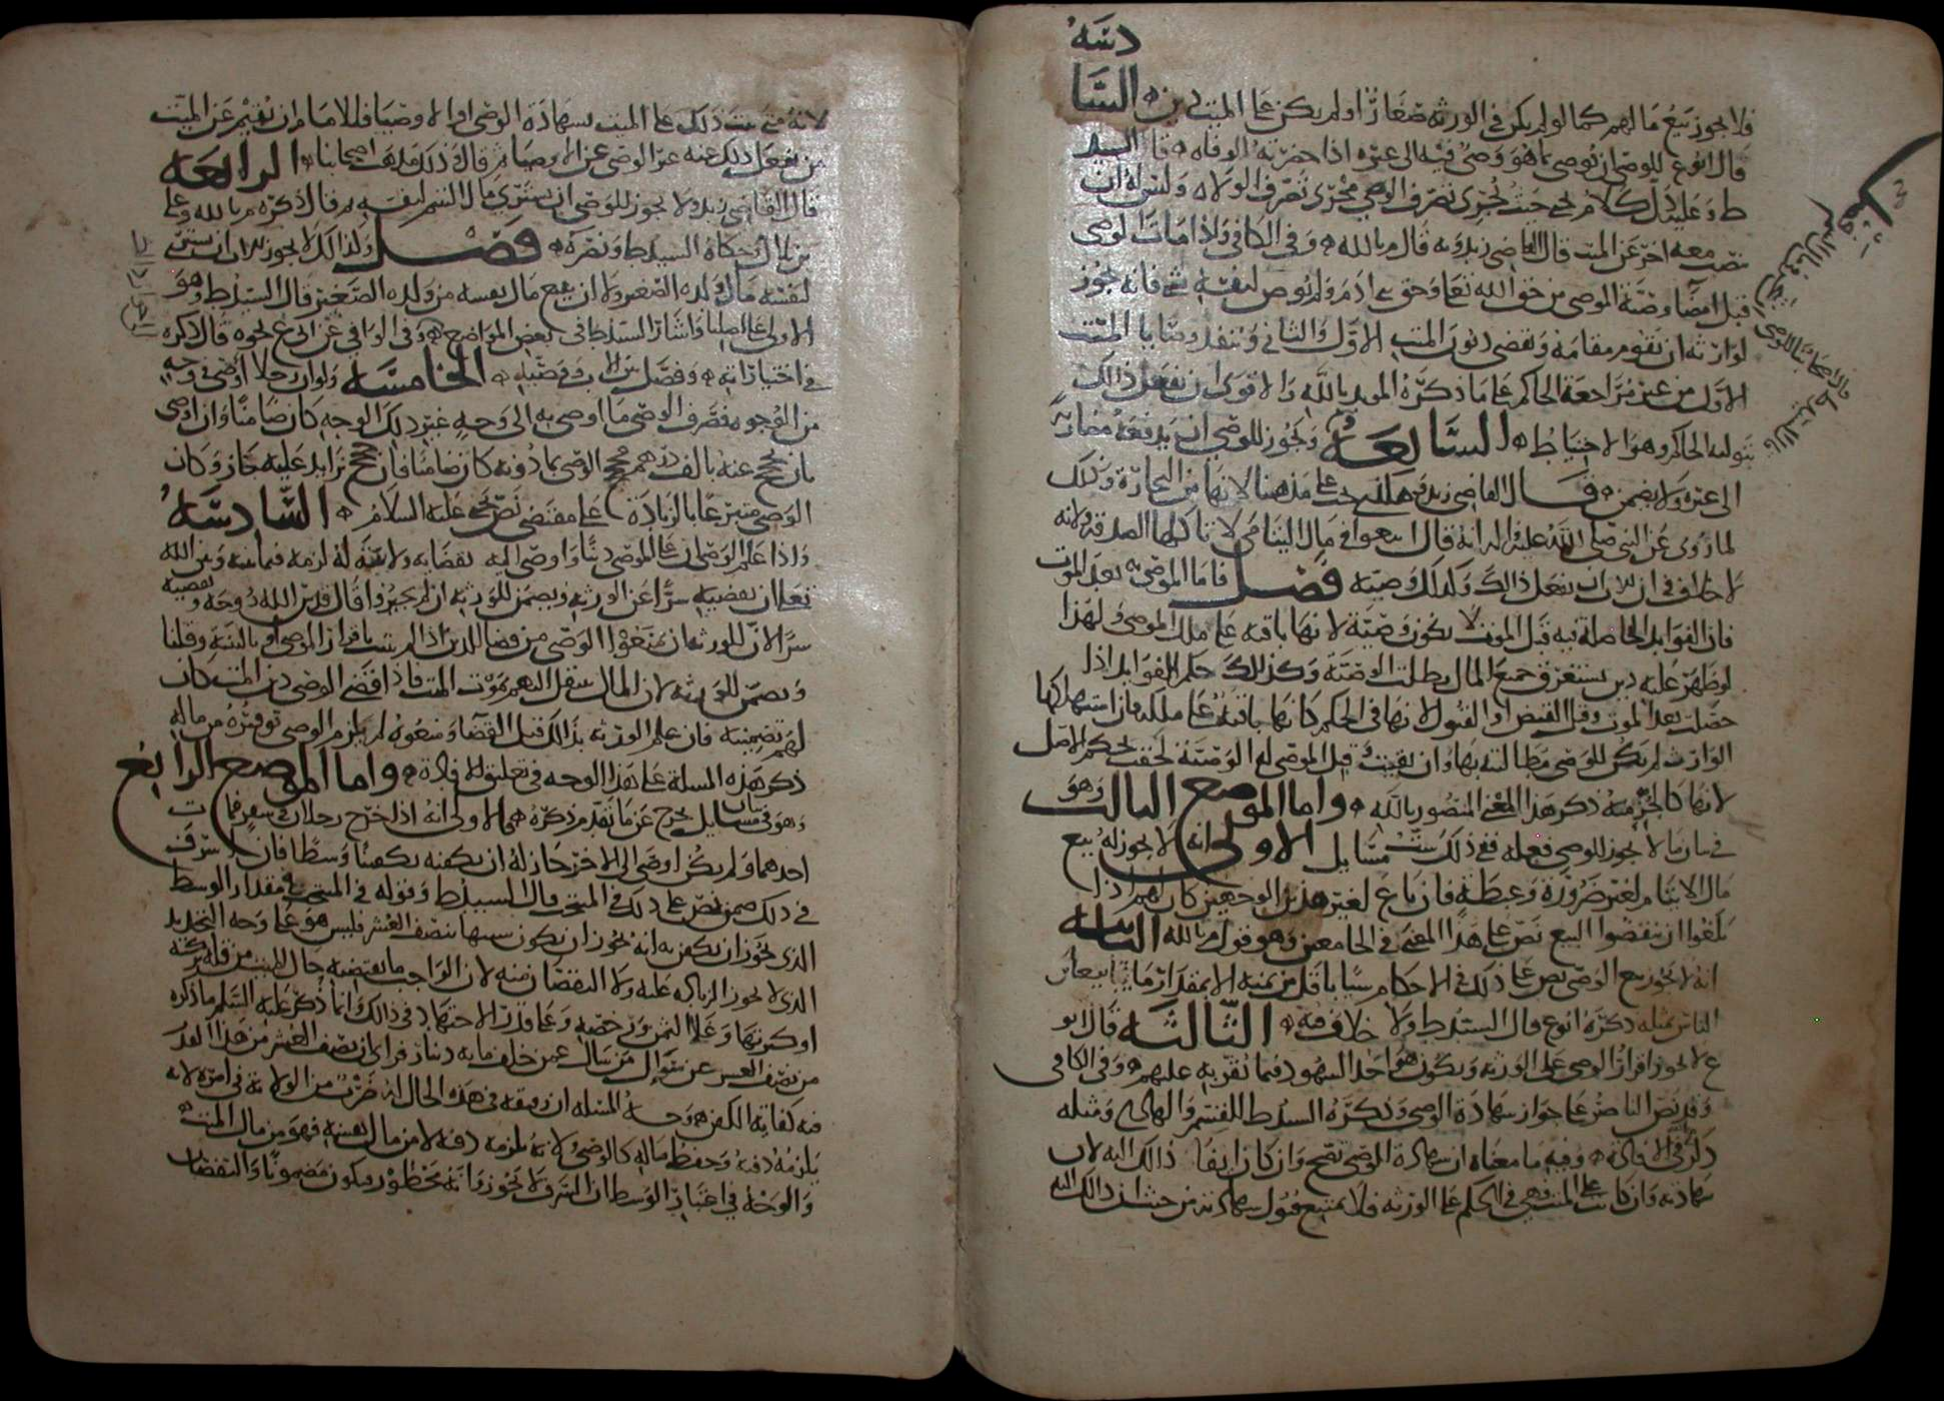 فلا يجوز بيع مالهم كما لو لم يكن في الورثة صغار أو لم يكن على الميت دين السا
دسة
قال أبو ع للوصي أن يوصي بما هو وصي فيه إلى غيره إذا حضرته الوفاة قال السيد
ط وعليه دل كلام يحيى حيث يجري تصرف الوصي مجرى تصرف الولاة وليس له أن
معه آخر عن الميت قال القاضي زيد وبه قال م بالله وفي الكافي وإذا مات الوصي
قبل إمضاء وصية الموصي من حق الله تعالى وحق بني آدم ولم يوص لنفسه شي فإنه يجوز
لوارثه أن يقوم مقامه ويقضي ديون الميت الأول والثاني وينفذ وصايا الميت
الأول من غير مراجعة الحاكم على ما ذكره المويد بالله والأقوى أن يفعل ذلك
بتولية الحاكم وهو الاحتياط السابعة ويجوز للوصي أن يدفعه مضاربة
إلى غيره ولا يضمن قال القاضي زيد على مذهبنا لأنها من التجارة وذلك
لما روي عن النبي صلى الله عليه وآله أنه قال ابتغوا في مال اليتامى لا تأكلها الصدقة ولأنه
لا خلاف في أن للأب أن يفعل ذلك وكذلك وصيه فصل فأما الموصى به بعد الموت
فإن الفوايد الحاصلة فيه قبل الموت لا يكون وصية لأنها باقية على ملك الموصي ولهذا
لو ظهر عليه دين يستغرق جميع المال بطلت الوصية وكذلك حكم الفوايد إذا
حصلت بعد الموت وقبل القبض أو القبول لأنها في الحكم كأنها باقية على ملكه فإن استهلكها
الوارث لم يكن للوصي مطالبته بها وإن بقيت وقبل الموصى له الوصية لحقت بحكم الأصل
لأنها كالجزء منه ذكر هذا المعنى المنصور بالله وأما الموضع الثالث وهو
في بيان ما لا يجوز للوصي فعله ففي ذلك ست مسايل الأولى أنه لا يجوز له بيع
مال الأيتام لغير ضرورة وغبطة فإن باع لغير هذين الوجهين كان لهم إذا
بلغوا أن ينقضوا البيع نص على هذا المعنى في الجامعين وهو قول م بالله الثانية
أنه لا يجوز بيع الوصي نص على ذلك في الأحكام شيا بأقل من ثمنه إلا بمقدار ما يتابع
الناس بمثله ذكره أبو ع قال السيد ط ولا خلاف فيه الثالثة قال أبو
ع لا يجوز إقرار الوصي على الورثة ويكون هو أحد الشهود فيما يقر به عليهم وفي الكافي
وقد نص الناصر على جواز شهادة الوصي وذكره السيد ط للقسم والهادي ومثله
ذكر في الإفادة وفيه ما معناه أن شهادة الوصي تصح وإن كان إيفا ذلك إليه لأن
شهادته وإن كانت على الميت فهي في الحكم على الورثة فلا يمتنع قبول شهادته من حيث أن ذلك إليه
لأنه متى ثبت ذلك على الميت بشهادة الوصي أولا وصيا فللإمام أن يقيم عن الميت
من يفعل ذلك عنه غير الوصي عن الأوصيا م قال وذلك مذهب أصحابنا الرابعة
قال القاضي زيد ولا يجوز للوصي أن يشتري مال اليتيم لنفسه م قال ذكره م بالله وعلي
بن بلال وحكاه السيد ط ونصره فصل وكذلك لا يجوز للأب أن يشتري
لنفسه مال ولده الصغير ولا أن يبيع مال نفسه من ولده الصغير قال السيد ط وهو
الأولى على أصلنا وأشار السيد ط في بعض المواضع وفي الوافي عن أبي ع نحوه قال ذكره
في اختياراته وفصل بين الأب ووصيه الخامسة ولو أن رجلا أوصى في وجه
من الوجوه فصرف الوصي ما أوصى به إلى وجه غير ذلك الوجه كان ضامنا وإن أوصى
بأن يحج عنه بألف درهم فحج الوصي بما دونه كان ضامنا فإن حجج بزايد عليه جاز وكان
الوصي متبرعا بالزيادة على مقتضى نص يحيى عليه السلام السادسة
وإذا علم الوصي أن على الموصي دينا وأوصى إليه بقضايه ولا بينة له لزمه فيما بينه وبين الله
تعالى أن يقضيه سرا عن الورثة ويضمن للورثة إن لم يجيزوا قال قدس الله روحه ويقضيه
سرا لأن للورثة أن يمنعوا الوصي من قضا الدين إذا لم يثبت بإقرار الموصي أو بالبينة وقلنا
ويضمن للورثة لأن المال ينتقل إليهم بموت الميت فإذا قضى الوصي دين الميت كان
لهم تضمينه فإن علم الورثة بذلك قبل القضا ومنعوه لم يلزم الوصي توفيره من ماله
ذكر هذه المسلة على هذا الوجه في تعليق الإفادة وأما الموضع الرابع
وهو في بيان مسايل تخرج عن ما تقدم ذكره هي الأولى أنه إذا خرج رجلان في سفر فمات
أحدهما ولم يكن أوصى إلى الآخر جاز له أن يكفنه تكفينا وسطا فإن أسرف
في ذلك ضمن نص على ذلك في المنتخب قال السيد ط وقوله في المنتخب ومقدار الوسط
الذي يجوز أن يكفن به أنه يجوز أن يكون سبيها بنصف العشر فليس هو على وجه التحديد
الذي لا يجوز الزيادة عليه ولا النقصان منه لأن الواجب ما يقتضيه حال الميت من قلة تركته
أو كثرتها وغلا الثمن ورخصه وعلى قدر الاجتهاد في ذلك وإنما ذكر عليه السلم ما ذكره
من نصف العشر عن سؤال من سأل عمن خلف مايه دينار فرأى أن نصف العشر من هذا القدر
فيه كفاية الكفن ووجه المسلة أن رفيقه في هذه الحال له ضرب من الولاية في أمره لأنه
يلزمه دفنه وحفظ ماله كالوصي ولأنه يلزمه دفنه لا من مال نفسه فهو من مال الميت
والوجه في اعتبار الوسط أن السرف لا يجوز وأنه محظور ويكون مضمونا والنقصان